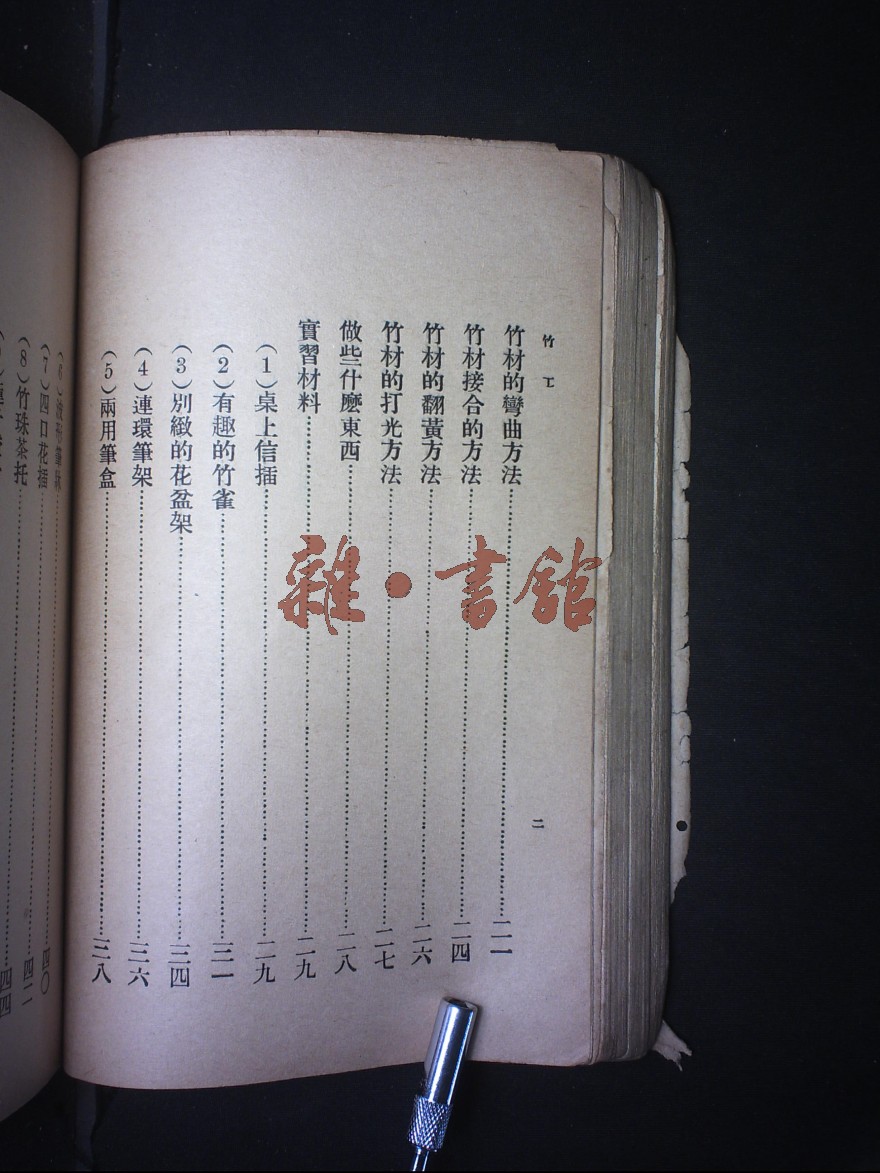 竹工
二
竹材的彎曲方法……二一
竹材接合的方法……二四
竹材的翻黃方法……二六
竹材的打光方法……二七
做些什麼東西……二八
實習材料……二九
（1）桌上信插……二九
（2）有趣的竹雀……三一
（3）別緻的花盆架……三四
（4）連環筆架……三六
（5）兩用筆盒……三八
（7）四口花插……四〇
（8）竹珠茶托……四二
四四
雜·書館